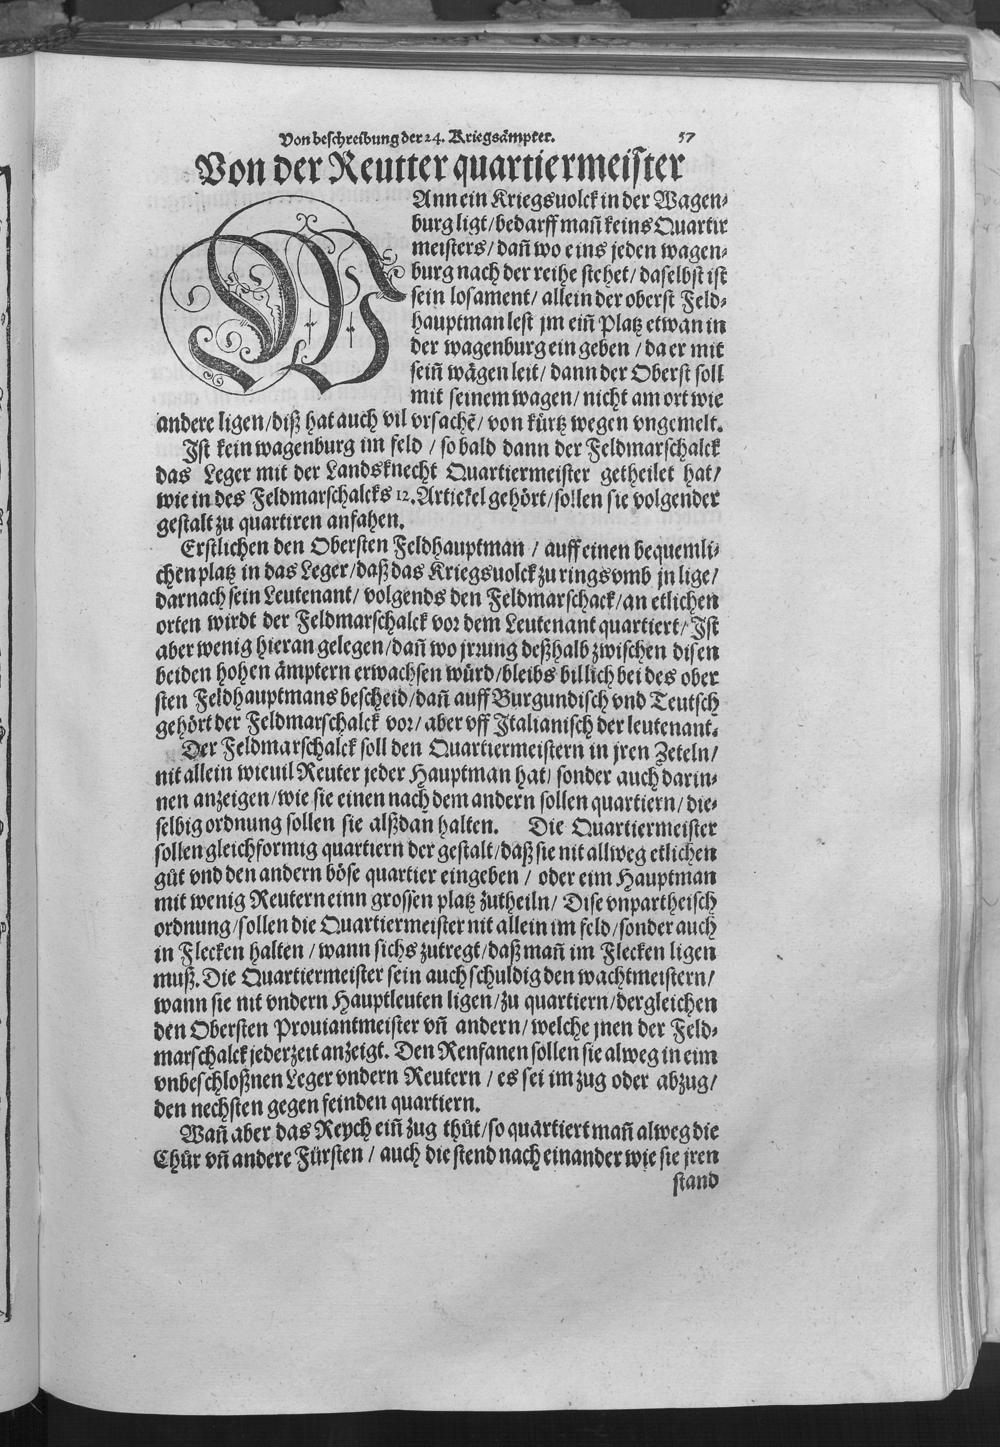 Von beschreibung der 24. Kriegsämpter. 57
Von der Reutter quartiermeister
WAnn ein Kriegsuolck in der Wagen⸗
burg ligt/ bedarff mañ keins Quartir
meisters/ dañ wo eins jeden wagen⸗
burg nach der reihe stehet/ daselbst ist
sein losament/ allein der oberst Feld⸗
hauptman lest jm eiñ Platz etwan in
der wagenburg ein geben / da er mit
seiñ wägen leit/ dann der Oberst soll
mit seinem wagen/ nicht am ort wie
andere ligen/ diß hat auch vil vrsachẽ/ von kürtz wegen vngemelt.
Ist kein wagenburg im feld / so bald dann der Feldmarschalck
das Leger mit der Landsknecht Quartiermeister getheilet hat/
wie in des Feldmarschalcks 12. Artickel gehört/ sollen sie volgender
gestalt zu quartiren anfahen.
Erstlichen den Obersten Feldhauptman / auff einen bequemli⸗
chen platz in das Leger/ daß das Kriegsuolck zu rings vmb jn lige/
darnach sein Leutenant/ volgends den Feldmarschack/ an etlichen
orten wirdt der Feldmarschalck vor dem Leutenant quartiert/ Ist
aber wenig hieran gelegen/ dañ wo jrrung deßhalb zwischen disen
beiden hohen ämptern erwachsen würd/ bleibs billich bei des ober
sten Feldhauptmans bescheid/ dañ auff Burgundisch vnd Teutsch
gehört der Feldmarschalck vor/ aber vff Italianisch der leutenant.
Der Feldmarschalck soll den Quartiermeistern in jren Zeteln/
nit allein wieuil Reuter jeder Hauptman hat/ sonder auch darin⸗
nen anzeigen/ wie sie einen nach dem andern sollen quartiern/ die⸗
selbig ordnung sollen sie alßdan halten. Die Quartiermeister
sollen gleichformig quartiern der gestalt/ daß sie nit allweg etlichen
gůt vnd den andern böse quartier eingeben / oder eim Hauptman
mit wenig Reutern einn grossen platz zutheiln/ Dise vnpartheisch
ordnung/ sollen die Quartiermeister nit allein im feld/ sonder auch
in Flecken halten / wann sichs zutregt/ daß mañ im Flecken ligen
muß. Die Quartiermeister sein auch schuldig den wachtmeistern/
wann sie nit vndern Hauptleuten ligen/ zu quartiern/ dergleichen
den Obersten Prouiantmeister vñ andern/ welche jnen der Feld⸗
marschalck jederzeit anzeigt. Den Renfanen sollen sie alweg in eim
vnbeschloßnen Leger vndern Reutern / es sei im zug oder abzug/
den nechsten gegen feinden quartiern.
Wañ aber das Reych eiñ zug thůt/ so quartiert mañ alweg die
Chůr vñ andere Fürsten / auch die stend nach einander wie sie jren
stand